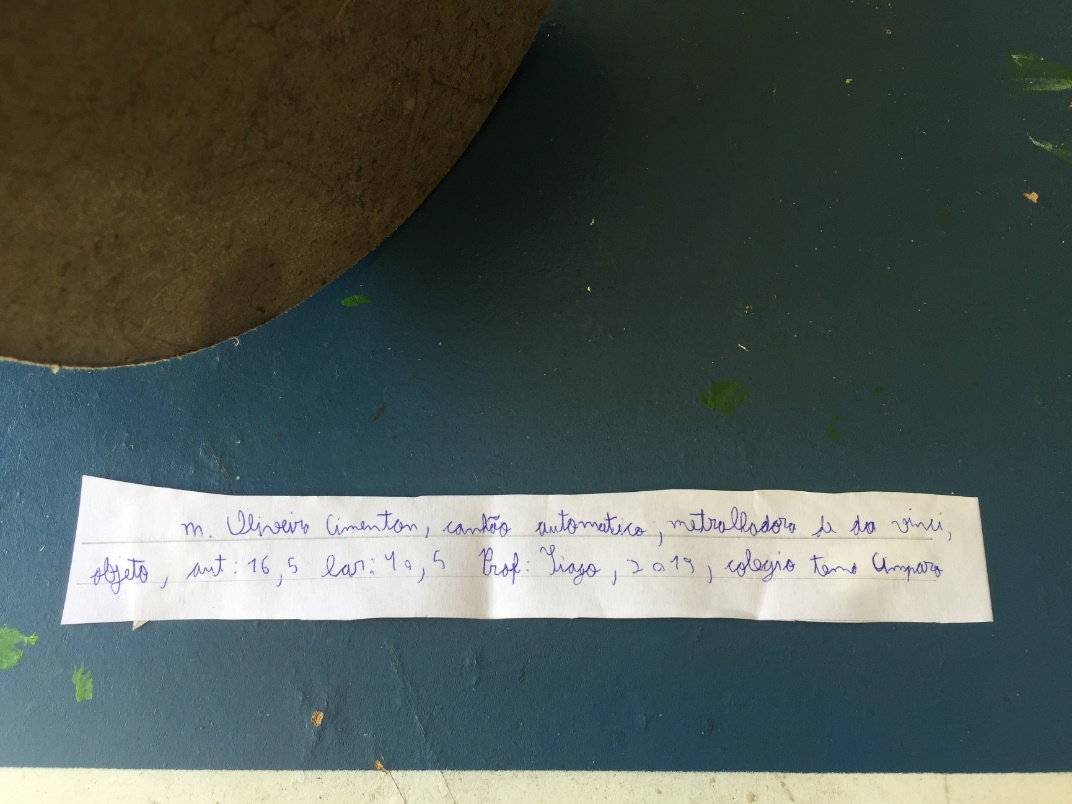 m. Oliveira Cimentan, canhão automatico, metralhadora de da vinci,
objeto, aut: 16,5 lar: 40,5 Prof: Tiago, 2019, colegio temo Amparo